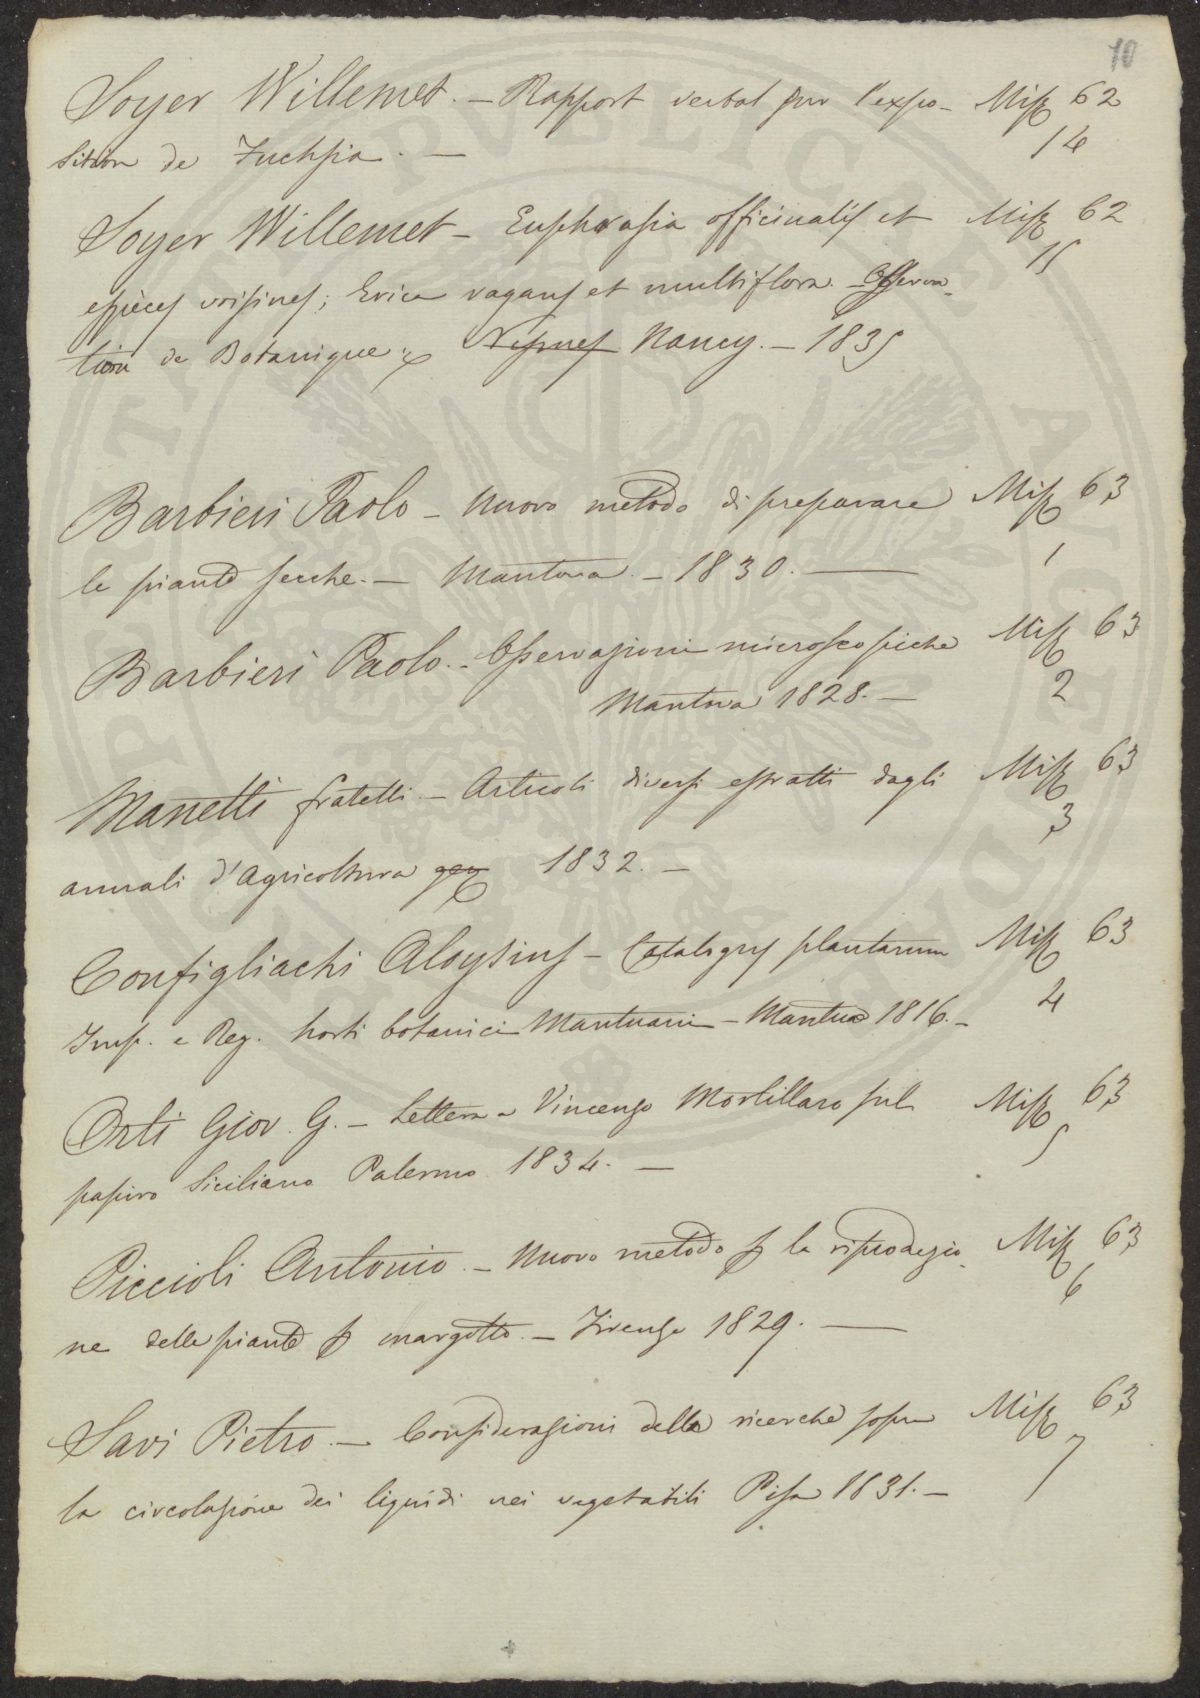 10
Soyer Willemet. — Rapport verbal sur l'expo- Misc 62
sition de Fuchsia. — 14
Soyer Willemet — Euphrasia officinalis et Misc 62
espèces voisines; Erica vagans et multiflora. — Observa- 15
tion de Botanique. Nancy. — 1835
Barbieri Paolo — Nuovo metodo di preparare Misc 63
le piante secche. — Mantova. — 1830. — 1
Barbieri Paolo. — Osservazioni microscopiche Misc 63
Mantova 1828. — 2
Manetti fratelli. — Articoli diversi estratti dagli Misc 63
annali d'Agricoltura 1832. — 3
Configliachi Aloysius — Catalogus plantarum Misc 63
Imp. e Reg. horti botanici Mantuani — Mantua 1816. — 4
Orti Giov. G. — Lettera a Vincenzo Mortillaro sul Misc 63
papiro Siciliano Palermo 1834. — 5
Piccioli Antonio. — Nuovo metodo p la riproduzio- Misc 63
ne delle piante p margotto. — Firenze 1829. — 6
Savi Pietro. — Considerazioni delle ricerche sopra Misc 63
la circolazione dei liquidi nei vegetabili Pisa 1831. — 7
PUBLICAE